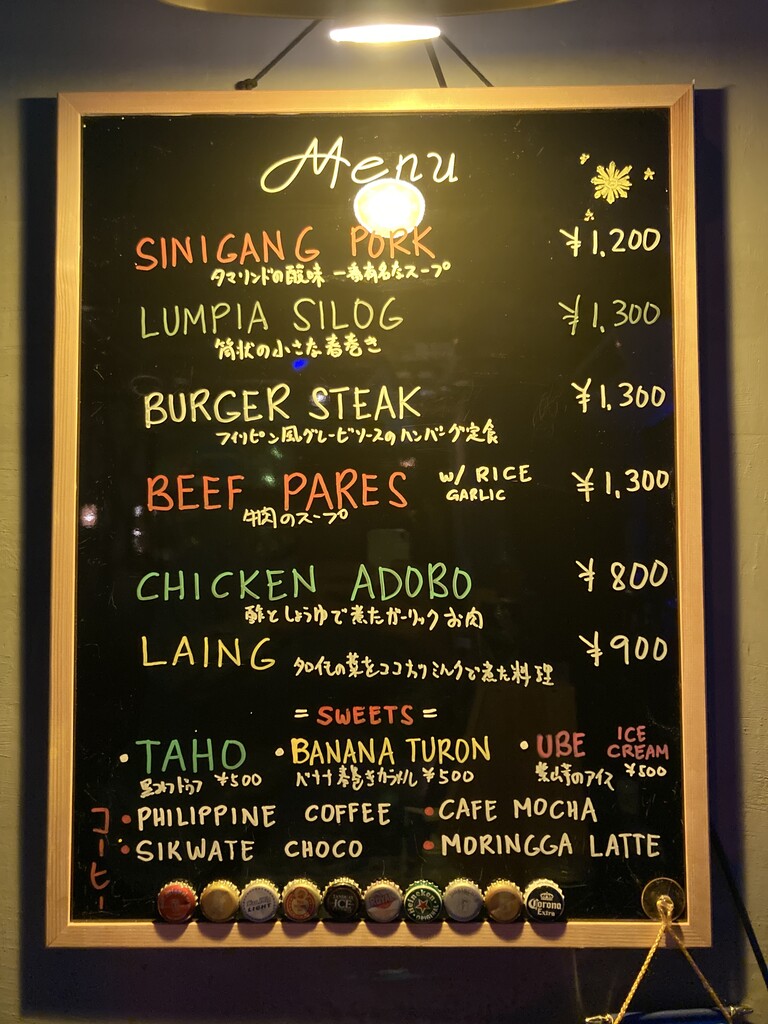 Menu
SINIGANG PORK ¥1,200
タマリンドの酸味 一番有名なスープ
LUMPIA SILOG ¥1,300
筒状の小さな春巻き
BURGER STEAK ¥1,300
フィリピン風グレービソースのハンバーグ定食
BEEF PARES W/ RICE GARLIC ¥1,300
牛肉のスープ
CHICKEN ADOBO ¥800
酢としょうゆで煮たガーリックお肉
LAING ¥900
タロイモの葉をココナッツミルクで煮た料理
= SWEETS =
• TAHO • BANANA TURON • UBE ICE CREAM
¥500 バナナ春巻きカラメル ¥500 紫山芋のアイス ¥500
コーヒー
• PHILIPPINE COFFEE • CAFE MOCHA
• SIKWATE CHOCO • MORINGGA LATTE
LIGHT
ICE
Heineken
Corona Extra